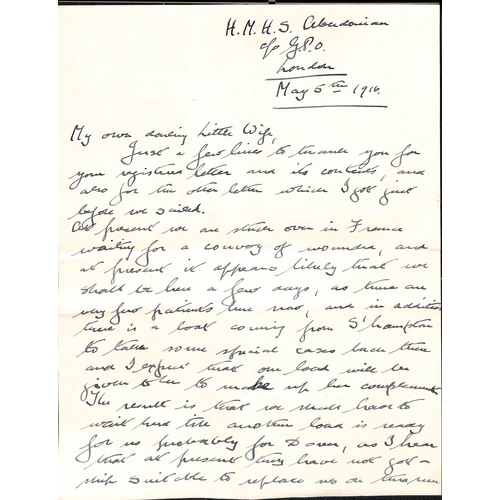 H.M.H.S. Aberdonian
c/o G.P.O.
London
May 5th 1916.
My own darling Little Wife,
Just a few lines to thank you for
your registered letter and its contents, and
also for the other letter which I got just
before we sailed.
At present we are stuck over in France
waiting for a convoy of wounded, and
at present it appears likely that we
should be here a few days, as there are
very few patients here now, and in addition
there is a boat coming from S'hampton
to take some special cases back there
and I expect that our load will be
given to her to make up her complement
The result is that we shall have to
wait here till another load is ready
for us probably for Dover, as I hear
that at present they have not got a
ship suitable to replace us on this run